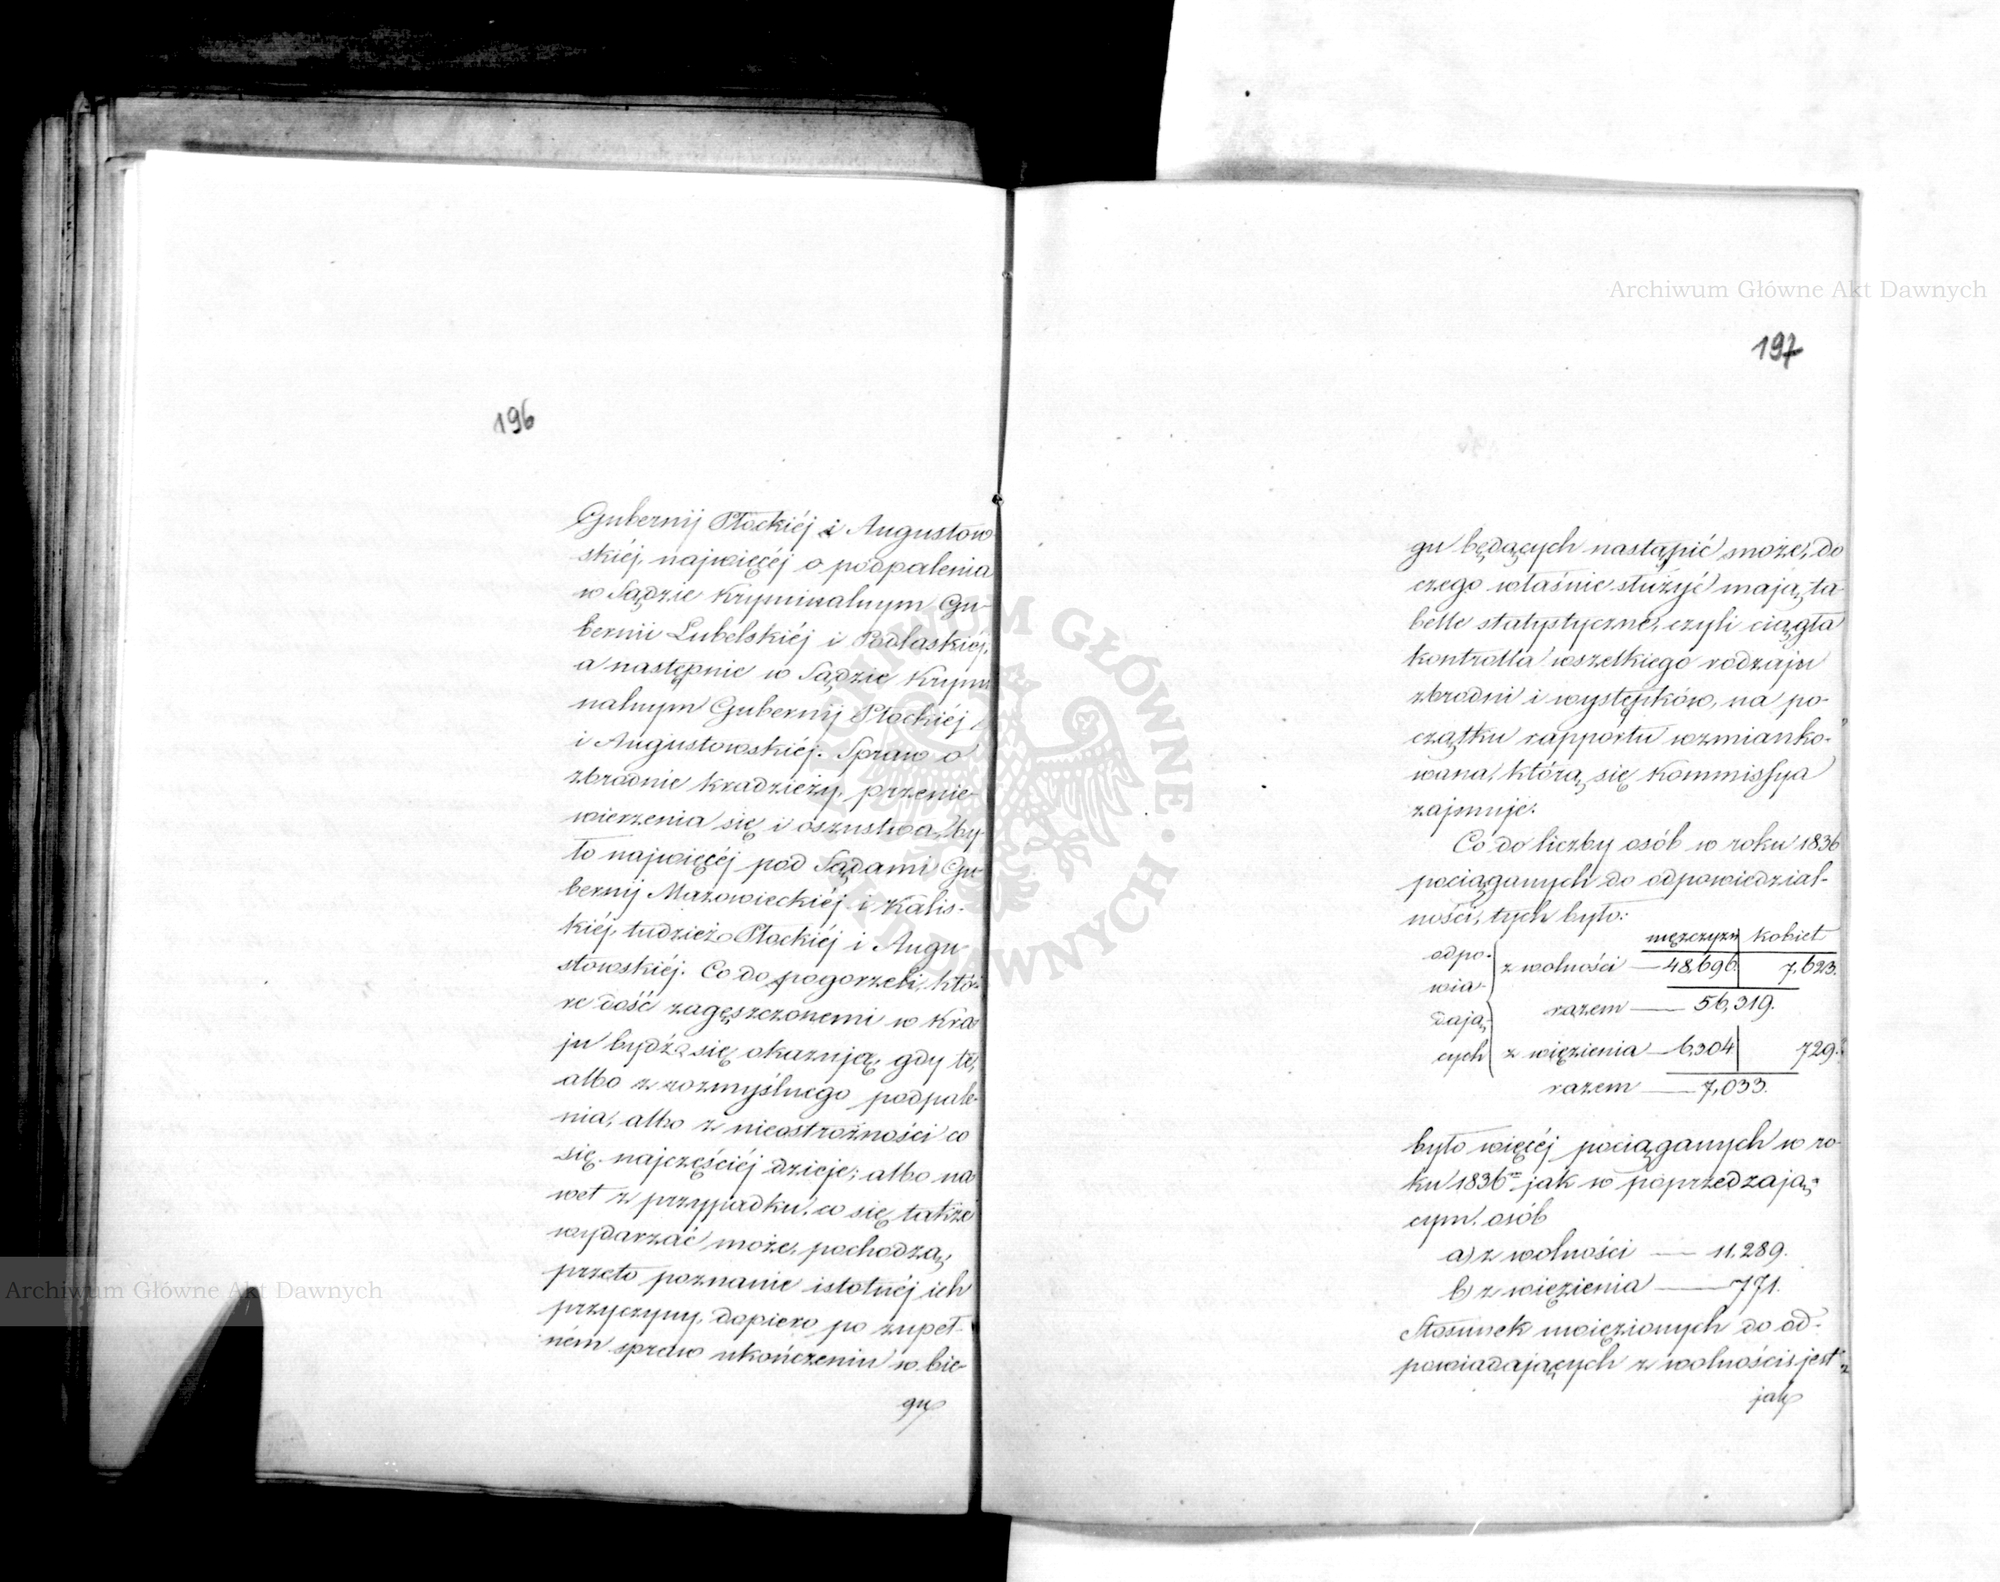 196
Gubernij Płockiéj i Augustow
skiéj, najwięcéj o podpalenia
w Sądzie Kryminalnym Gu-
bernii Lubelskiéj i Podlaskiéj,
a następnie w Sądzie Krymi
nalnym Gubernij Płockiéj
i Augustowskiéj. Spraw o
zbrodnie kradzieży, przenie-
wierzenia się i oszustwa, by-
ło najwięcéj pod Sądami Gu-
bernij Mazowieckiéj i Kalis-
kiéj, tudzież Płockiéj i Augu
stowskiéj. Co do pogorzeli, któ-
re dość zagęszczonemi w Kra
ju bydź się okazują, gdy te,
albo z rozmyślnego podpale-
nia, albo z nieostrożności co
się najczęściéj dzieje; albo na
wet z przypadku, co się także
wydarzać może, pochodzą,
przeto poznanie istotnéj ich
przyczyny, dopiero po zupeł-
ném spraw ukończeniu w bie-
gu
Archiwum Główne Akt Dawnych
197
gu będących nastąpić może, do
czego właśnie służyć mają ta-
belle statystyczne, czyli ciągła
kontrolla wszelkiego rodzaju
zbrodni i występków, na po-
czątku rapportu wzmianko-
wana, którą się Kommissya
zajmuje.
Co do liczby osób w roku 1836
pociąganych do odpowiedzial-
ności, tych było:
mężczyzn kobiet
odpo- z wolności — 48,696 7,623.
wia-
dają- razem — 56,319.
cych z więzienia — 6,304 729.
razem — 7,033.
było więcéj pociąganych w ro-
ku 1836 jak w poprzedzają-
cym osób
a) z wolności — 11,289.
b) z więzienia — 771.
Stosunek uwięzionych do od-
powiadających z wolności jest
jak
Archiwum Główne Akt Dawnych
ARCHIWUM GŁÓWNE AKT DAWNYCH